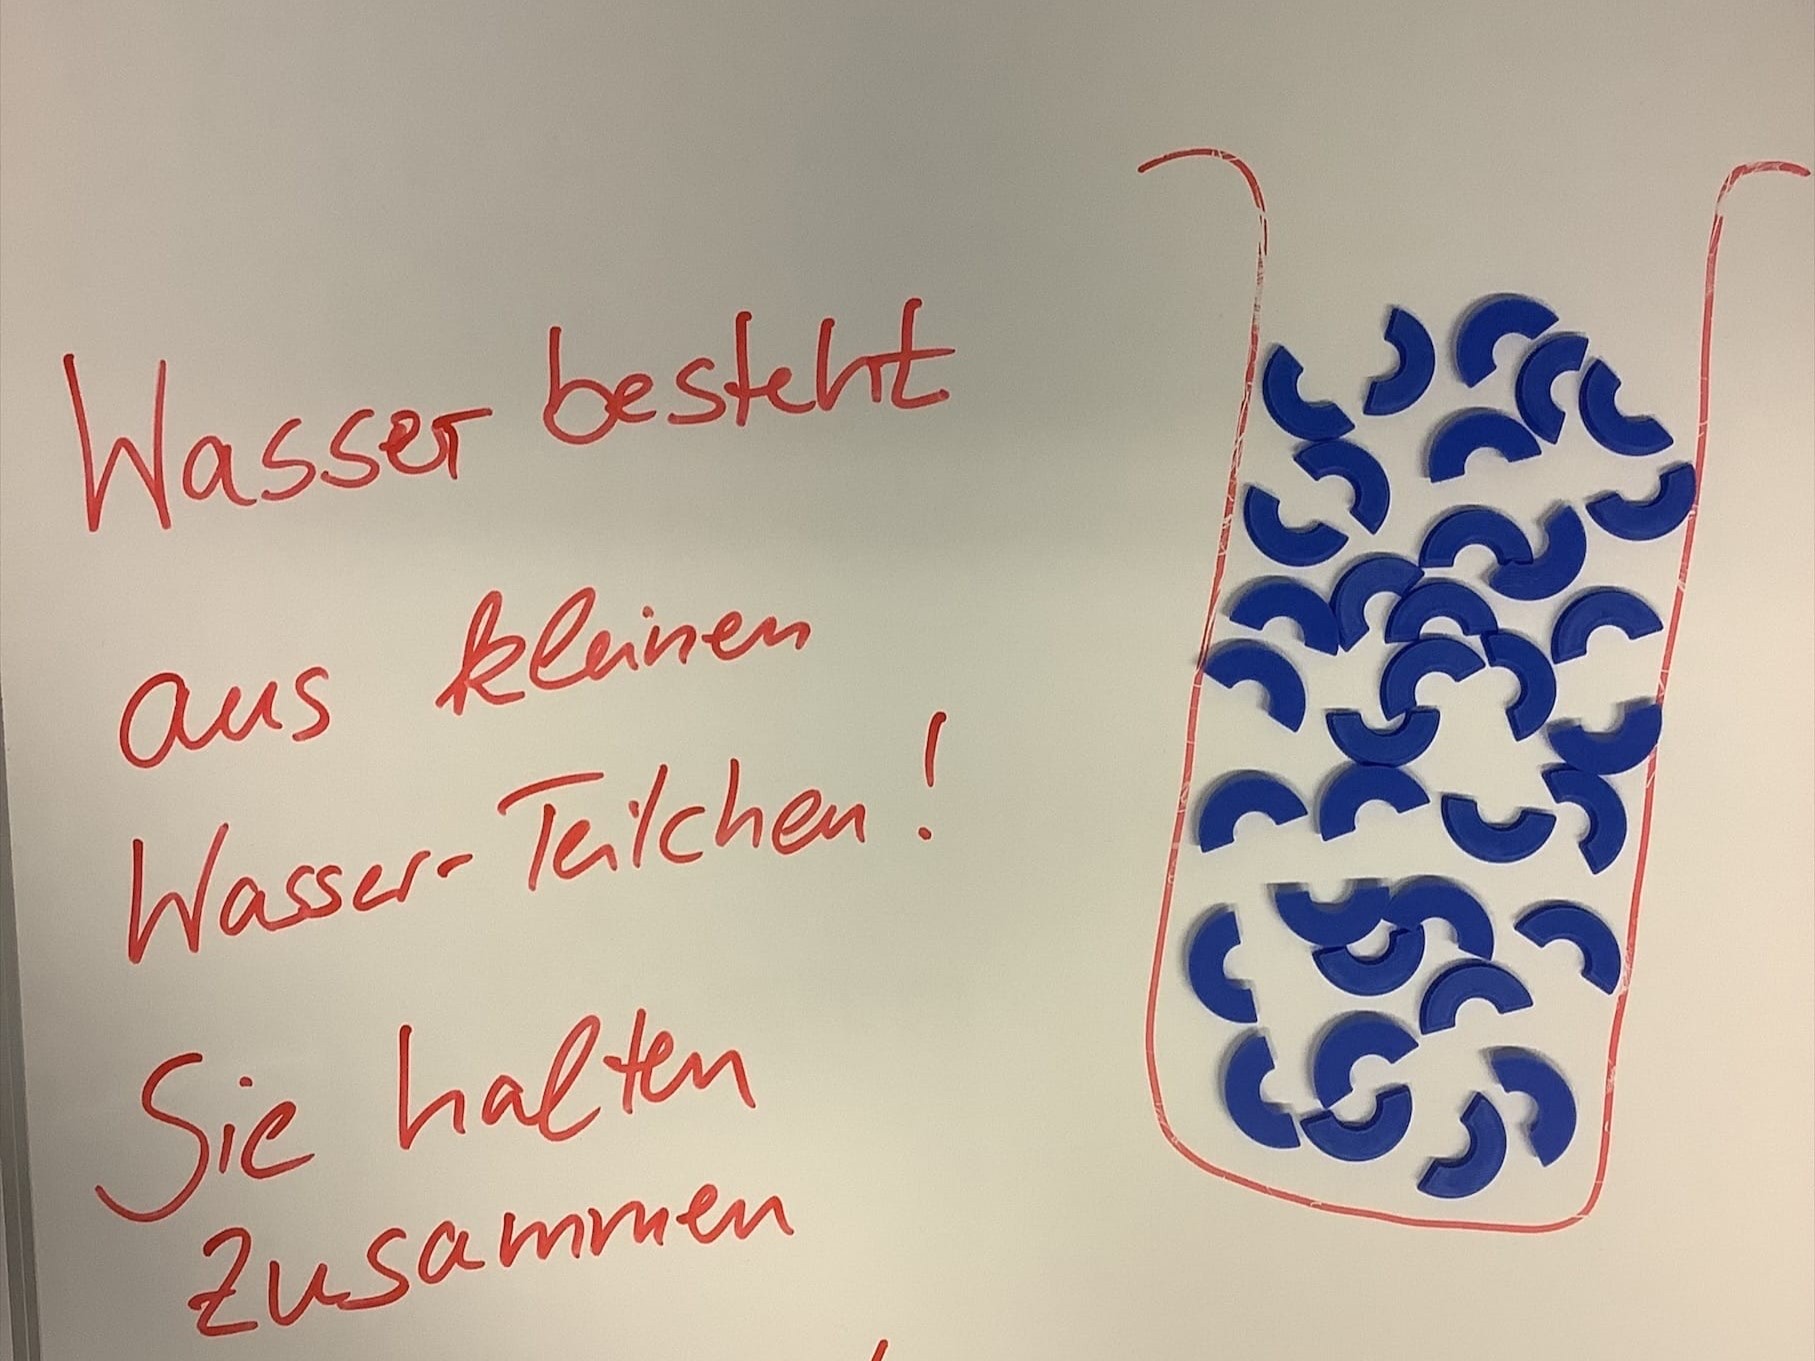 Wasser besteht
aus kleinen
Wasser-Teilchen!
Sie halten
zusammen